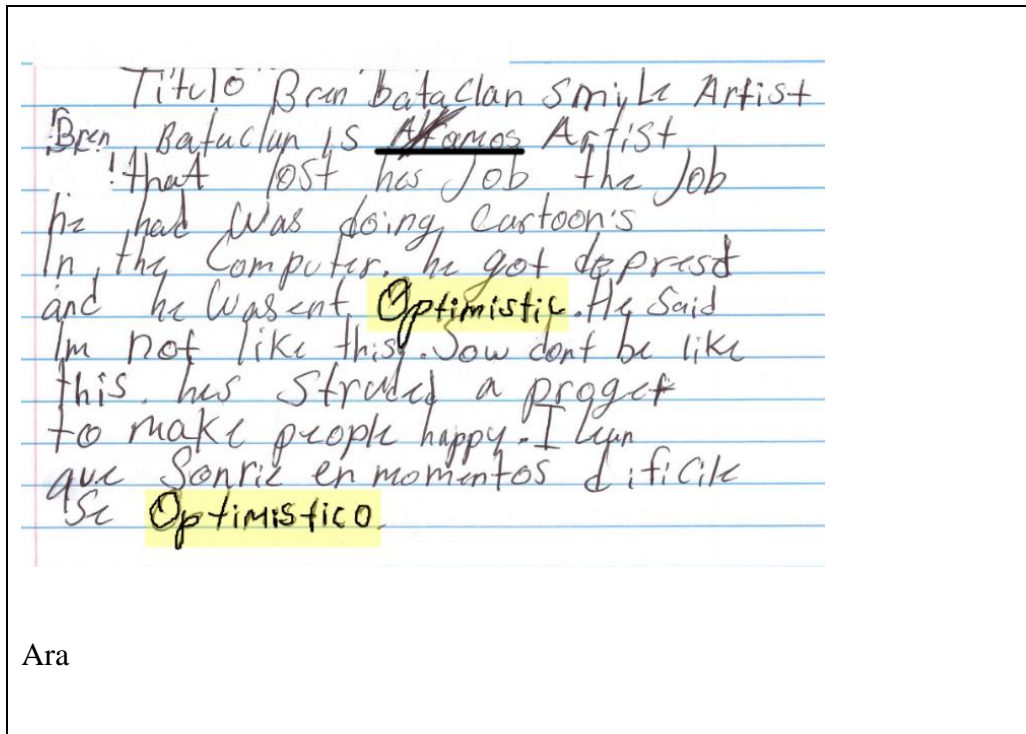 Titulo Bren bataclan Smile Artist
Bren Bataclan is A famos Artist
that lost hes Job the Job
he had Was doing Cartoon's
In the Computer. he got deprest
and he Wasent Optimistic. He Said
Im not like this. Sow dont be like
this. hes Struded a proget
to make people happy. I lern
que Sonrie en momentos dificile
Se Optimistico.
Ara